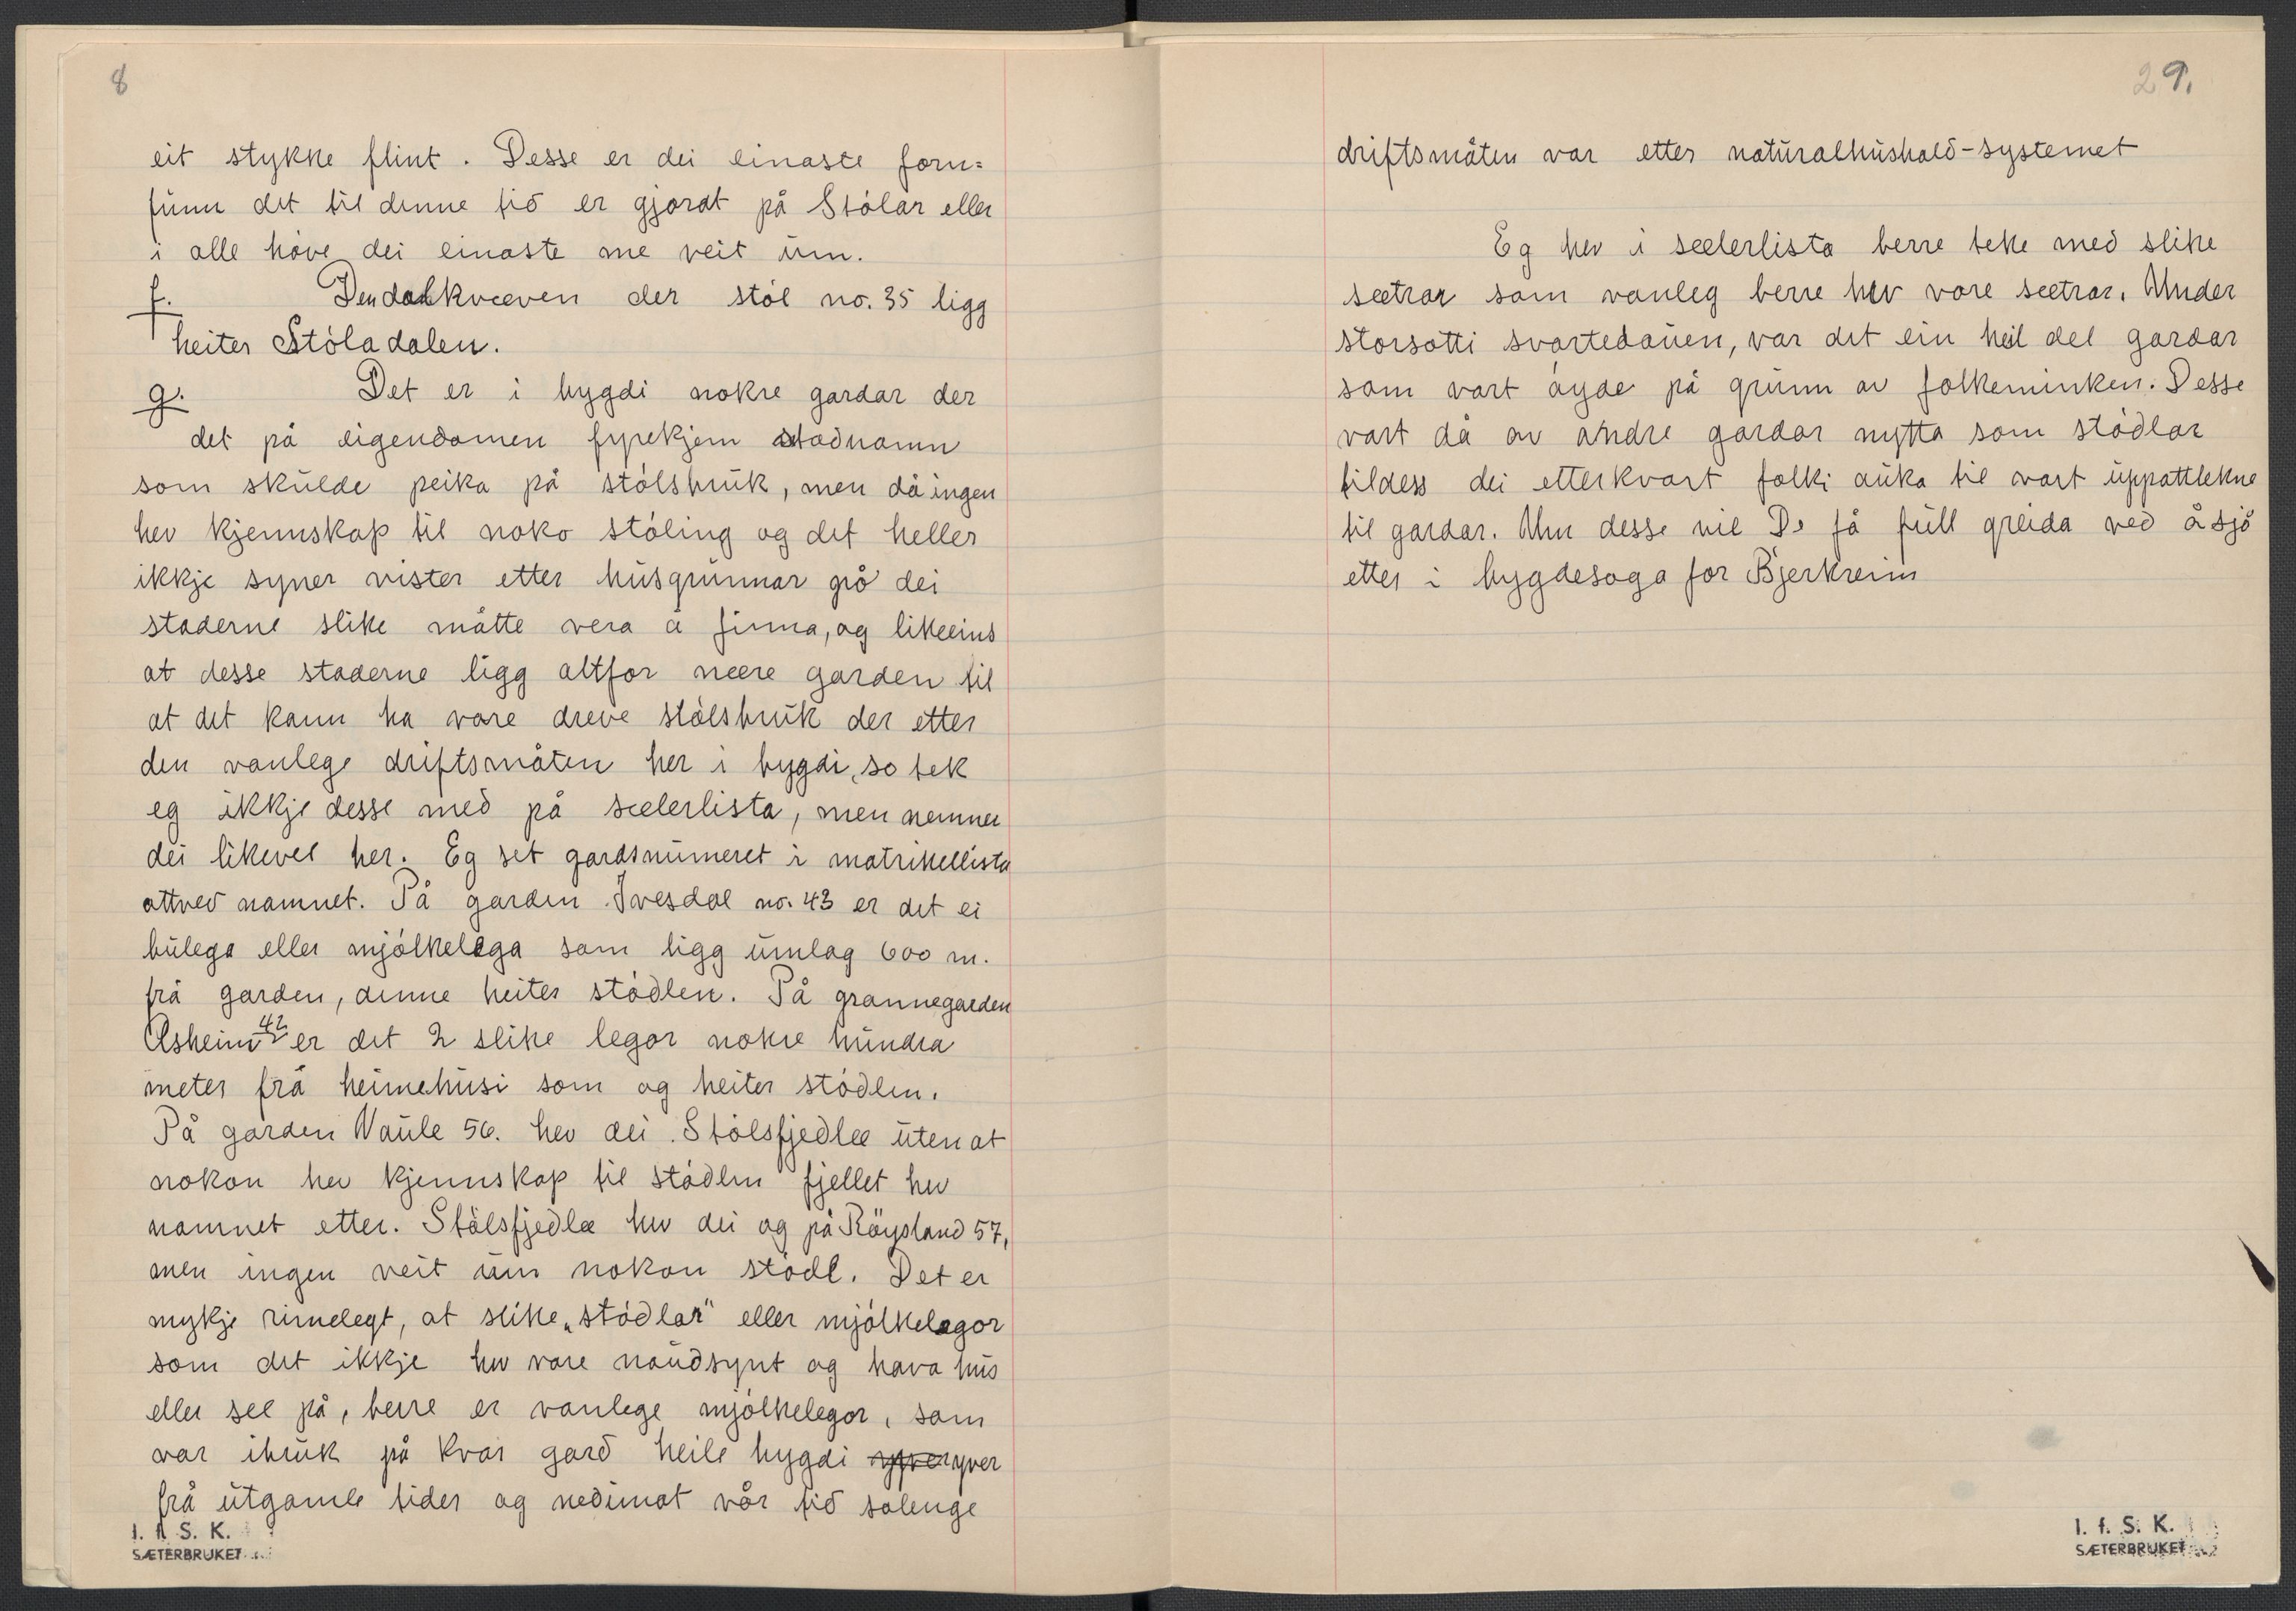 8
eit stykke flint. Desse er dei einaste forn=
funn det til denne tid er gjordt på Stólar eller
i alle höve dei einaste me veit um.
f. Den dalkvæven der stól no. 35 ligg
heiter Stóladalen.
g. Det er i bygdi nokre gardar der
det på eigendomen fyrekjem stadnamn
som skulde peika på stólsbruk, men då ingen
hev kjennskap til noko stóling og det heller
ikkje syner vister etter husgrunnar på dei
staderne slike måtte vera å finna, og likeeins
at desse staderne ligg altfor nære garden til
at det kann ha vore dreve stólsbruk der etter
den vanlege driftsmåten her i bygdi, so tek
eg ikkje desse med på sæterlista, men nemner
dei likevel her. Eg set gardsnumeret i matrikellista
attved namnet. På garden Ivesdal no. 43 er det ei
bulega eller mjólkelega som ligg umlag 600 m.
frå garden, denne heiter stódlen. På grannegarden
Asheim 42 er det 2 slike legor nokre hundra
meter frå heimehusi som og heiter stódlen.
På garden Vaule 56. hev dei Stólsfjedlæ uten at
nokon hev kjennskap til stódlen fjellet hev
namnet etter. Stólsfjedlæ hev dei og på Röysland 57,
men ingen veit um nokon stódl. Det er
mykje rimelegt, at slike „stódlar" eller mjólkelegor
som det ikkje hev vore naudsynt og hava hus
eller sel på, berre er vanlege mjólkelegor, som
var ibruk på kvar gard heile bygdi yver
frå utgamle tider og nedimot vår tid solenge
I. f. S. K.
SÆTERBRUKET
29.
driftsmåten var etter naturalhushald-systemet
Eg hev i sæterlista berre teke med slike
sætrar som vanleg berre hev vore sætrar. Under
storsotti svartedauen, var det ein heil del gardar
som vart öyde på grunn av folkeminken. Desse
vart då av andre gardar nytta som stódlar
tildess dei etterkvart folki auka til vart uppattekne
til gardar. Um desse vil De få full greida ved å sjå
etter i bygdesoga for Bjerkreim
I. f. S. K.
SÆTERBRUKET